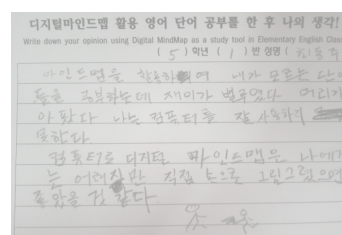 디지털마인드맵 활용 영어 단어 공부를 한 후 나의 생각!
Write down your opinion using Digital MindMap as a study tool in Elementary English Class
( 5 ) 학년 ( 1 ) 반 성명 (
마인드맵을 여 내가 모르는 단어
들은 공부하는데 재미가 별루였다 머리가
아팠다 나는 컴퓨터를 잘 사용하기
못한다.
컴퓨터로 디지털 마인드맵은 나에게
는 어려웠지만 직접 손으로 그림그렸으면
좋았을 것 같다